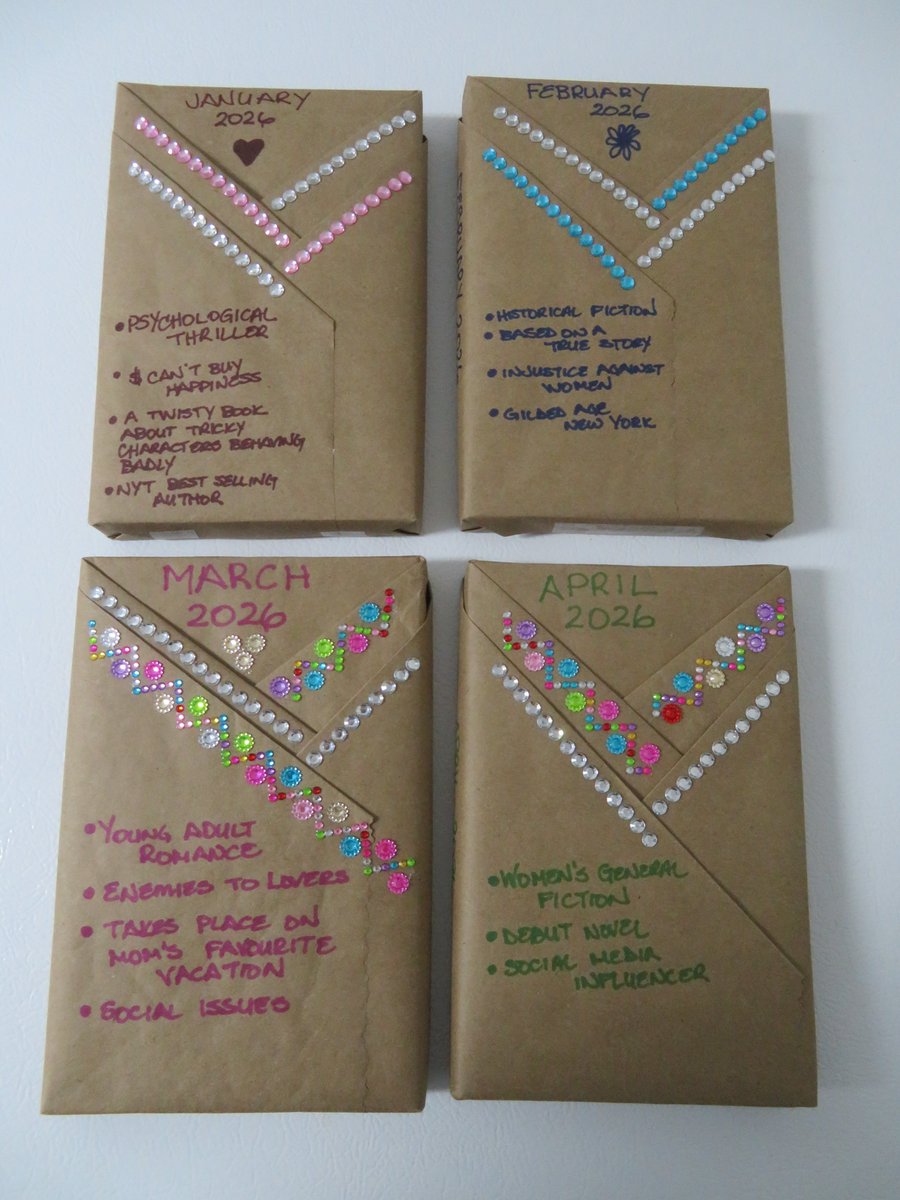 JANUARY
2026
• PSYCHOLOGICAL
THRILLER
• $ CAN'T BUY
HAPPINESS
• A TWISTY BOOK
ABOUT TRICKY
CHARACTERS BEHAVING
BADLY
• NYT BEST SELLING
AUTHOR
FEBRUARY
2026
• HISTORICAL FICTION
• BASED ON A
TRUE STORY
• INJUSTICE AGAINST
WOMEN
• GILDED AGE
NEW YORK
MARCH
2026
• YOUNG ADULT
ROMANCE
• ENEMIES TO LOVERS
• TAKES PLACE ON
MOM'S FAVOURITE
VACATION
• SOCIAL ISSUES
APRIL
2026
• WOMEN'S GENERAL
FICTION
• DEBUT NOVEL
• SOCIAL MEDIA
INFLUENCER